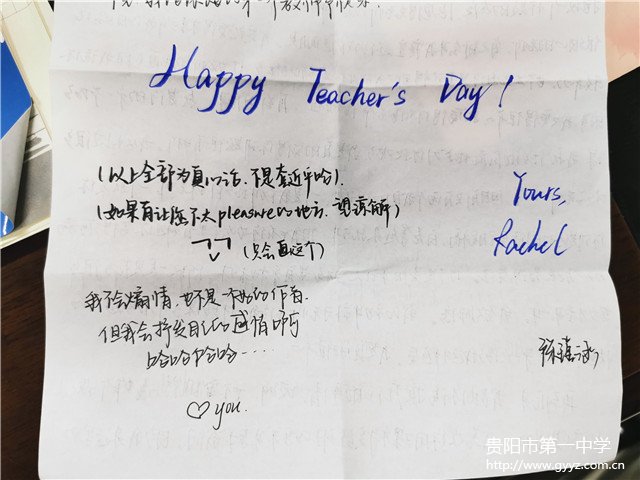 Happy Teacher's Day!
(以上全部为真心话,不是套近乎哈)
(如果有让您不太pleasure的地方,望谅解)
(只会画这个)
Yours,
Rachel
我不会煽情,也不是
但我会抒发自己的感情啊
哈哈哈哈……
♡ you.
贵阳市第一中学
http://www.gyyz.com.cn